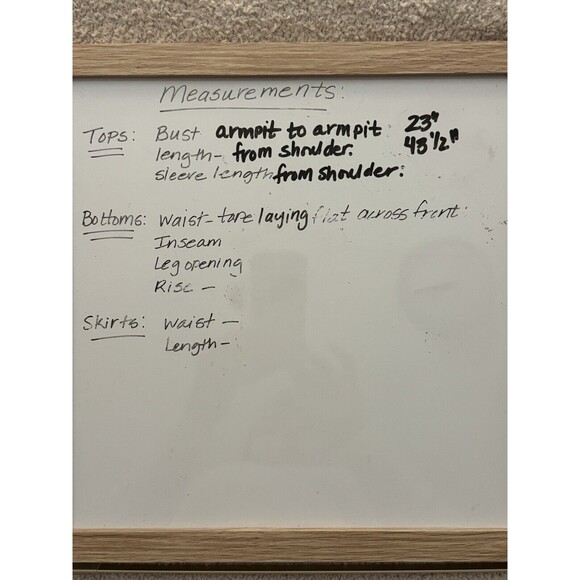 Measurements:
Tops: Bust armpit to armpit 23"
length- from shoulder. 43 1/2"
sleeve length from shoulder:
Bottoms: waist- tape laying flat across front:
Inseam
Leg opening
Rise -
Skirts: waist -
Length -